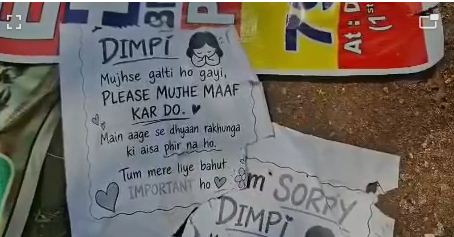 DIMPI
Mujhse galti ho gayi,
PLEASE MUJHE MAAF
KAR DO.
Main aage se dhyaan rakhunga
ki aisa phir na ho.
Tum mere liye bahut
IMPORTANT ho
m SORRY
DIMPI
At : D